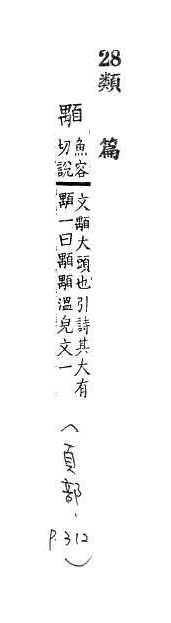 28
類篇
顒
魚容
切說
文顒大頭也引詩其大有
顒一曰顒顒溫皃文一
(頁部, p.312)